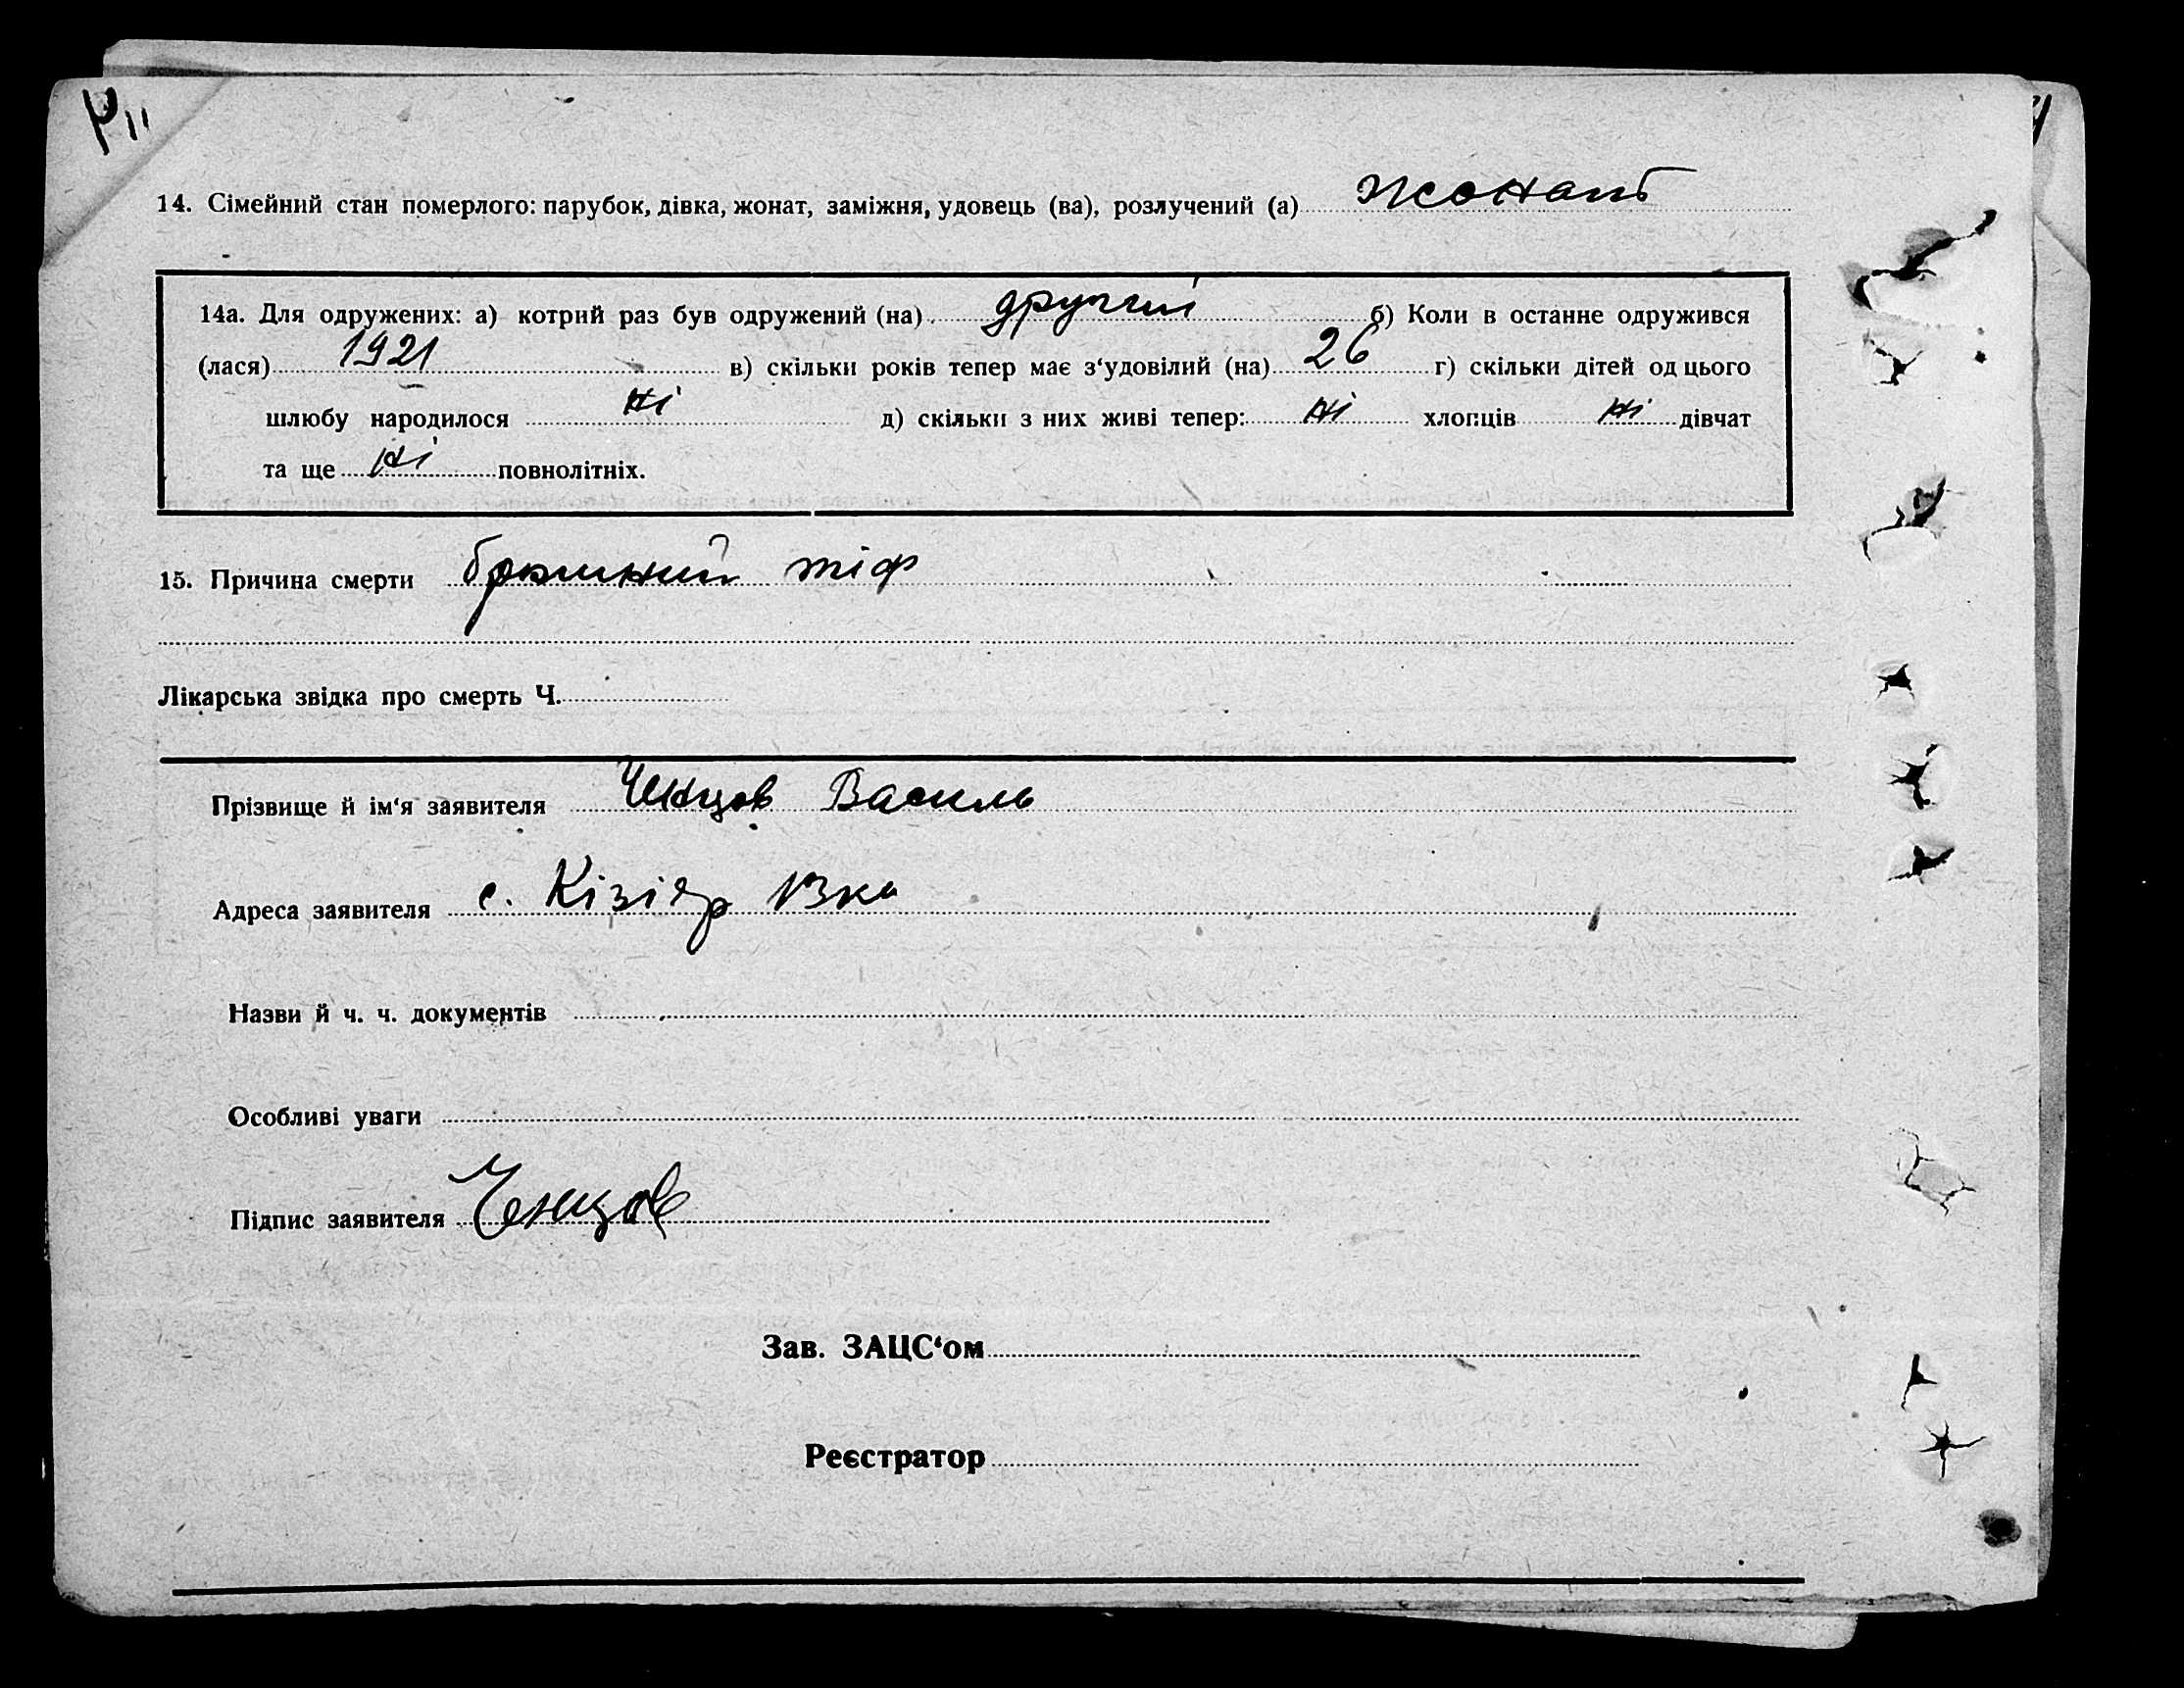 14. Сімейний стан померлого: парубок, дівка, жонат, заміжня, удовець (ва), розлучений (а) жонат
14а. Для одружених: а) котрий раз був одружений (на) другий б) Коли в останне одружився
(лася) 1921 в) скільки років тепер має з‘удовілий (на) 26 г) скільки дітей од цього
шлюбу народилося ні д) скільки з них живі тепер: ні хлопців ні дівчат
та ще ні повнолітніх.
15. Причина смерти брюшний тіф
Лікарська звідка про смерть Ч.
Прізвище й ім‘я заявителя Ченцов Василь
Адреса заявителя с. Кізіяр
Назви й ч. ч. документів
Особливі уваги
Підпис заявителя Ченцов
Зав. ЗАЦС‘ом
Реєстратор